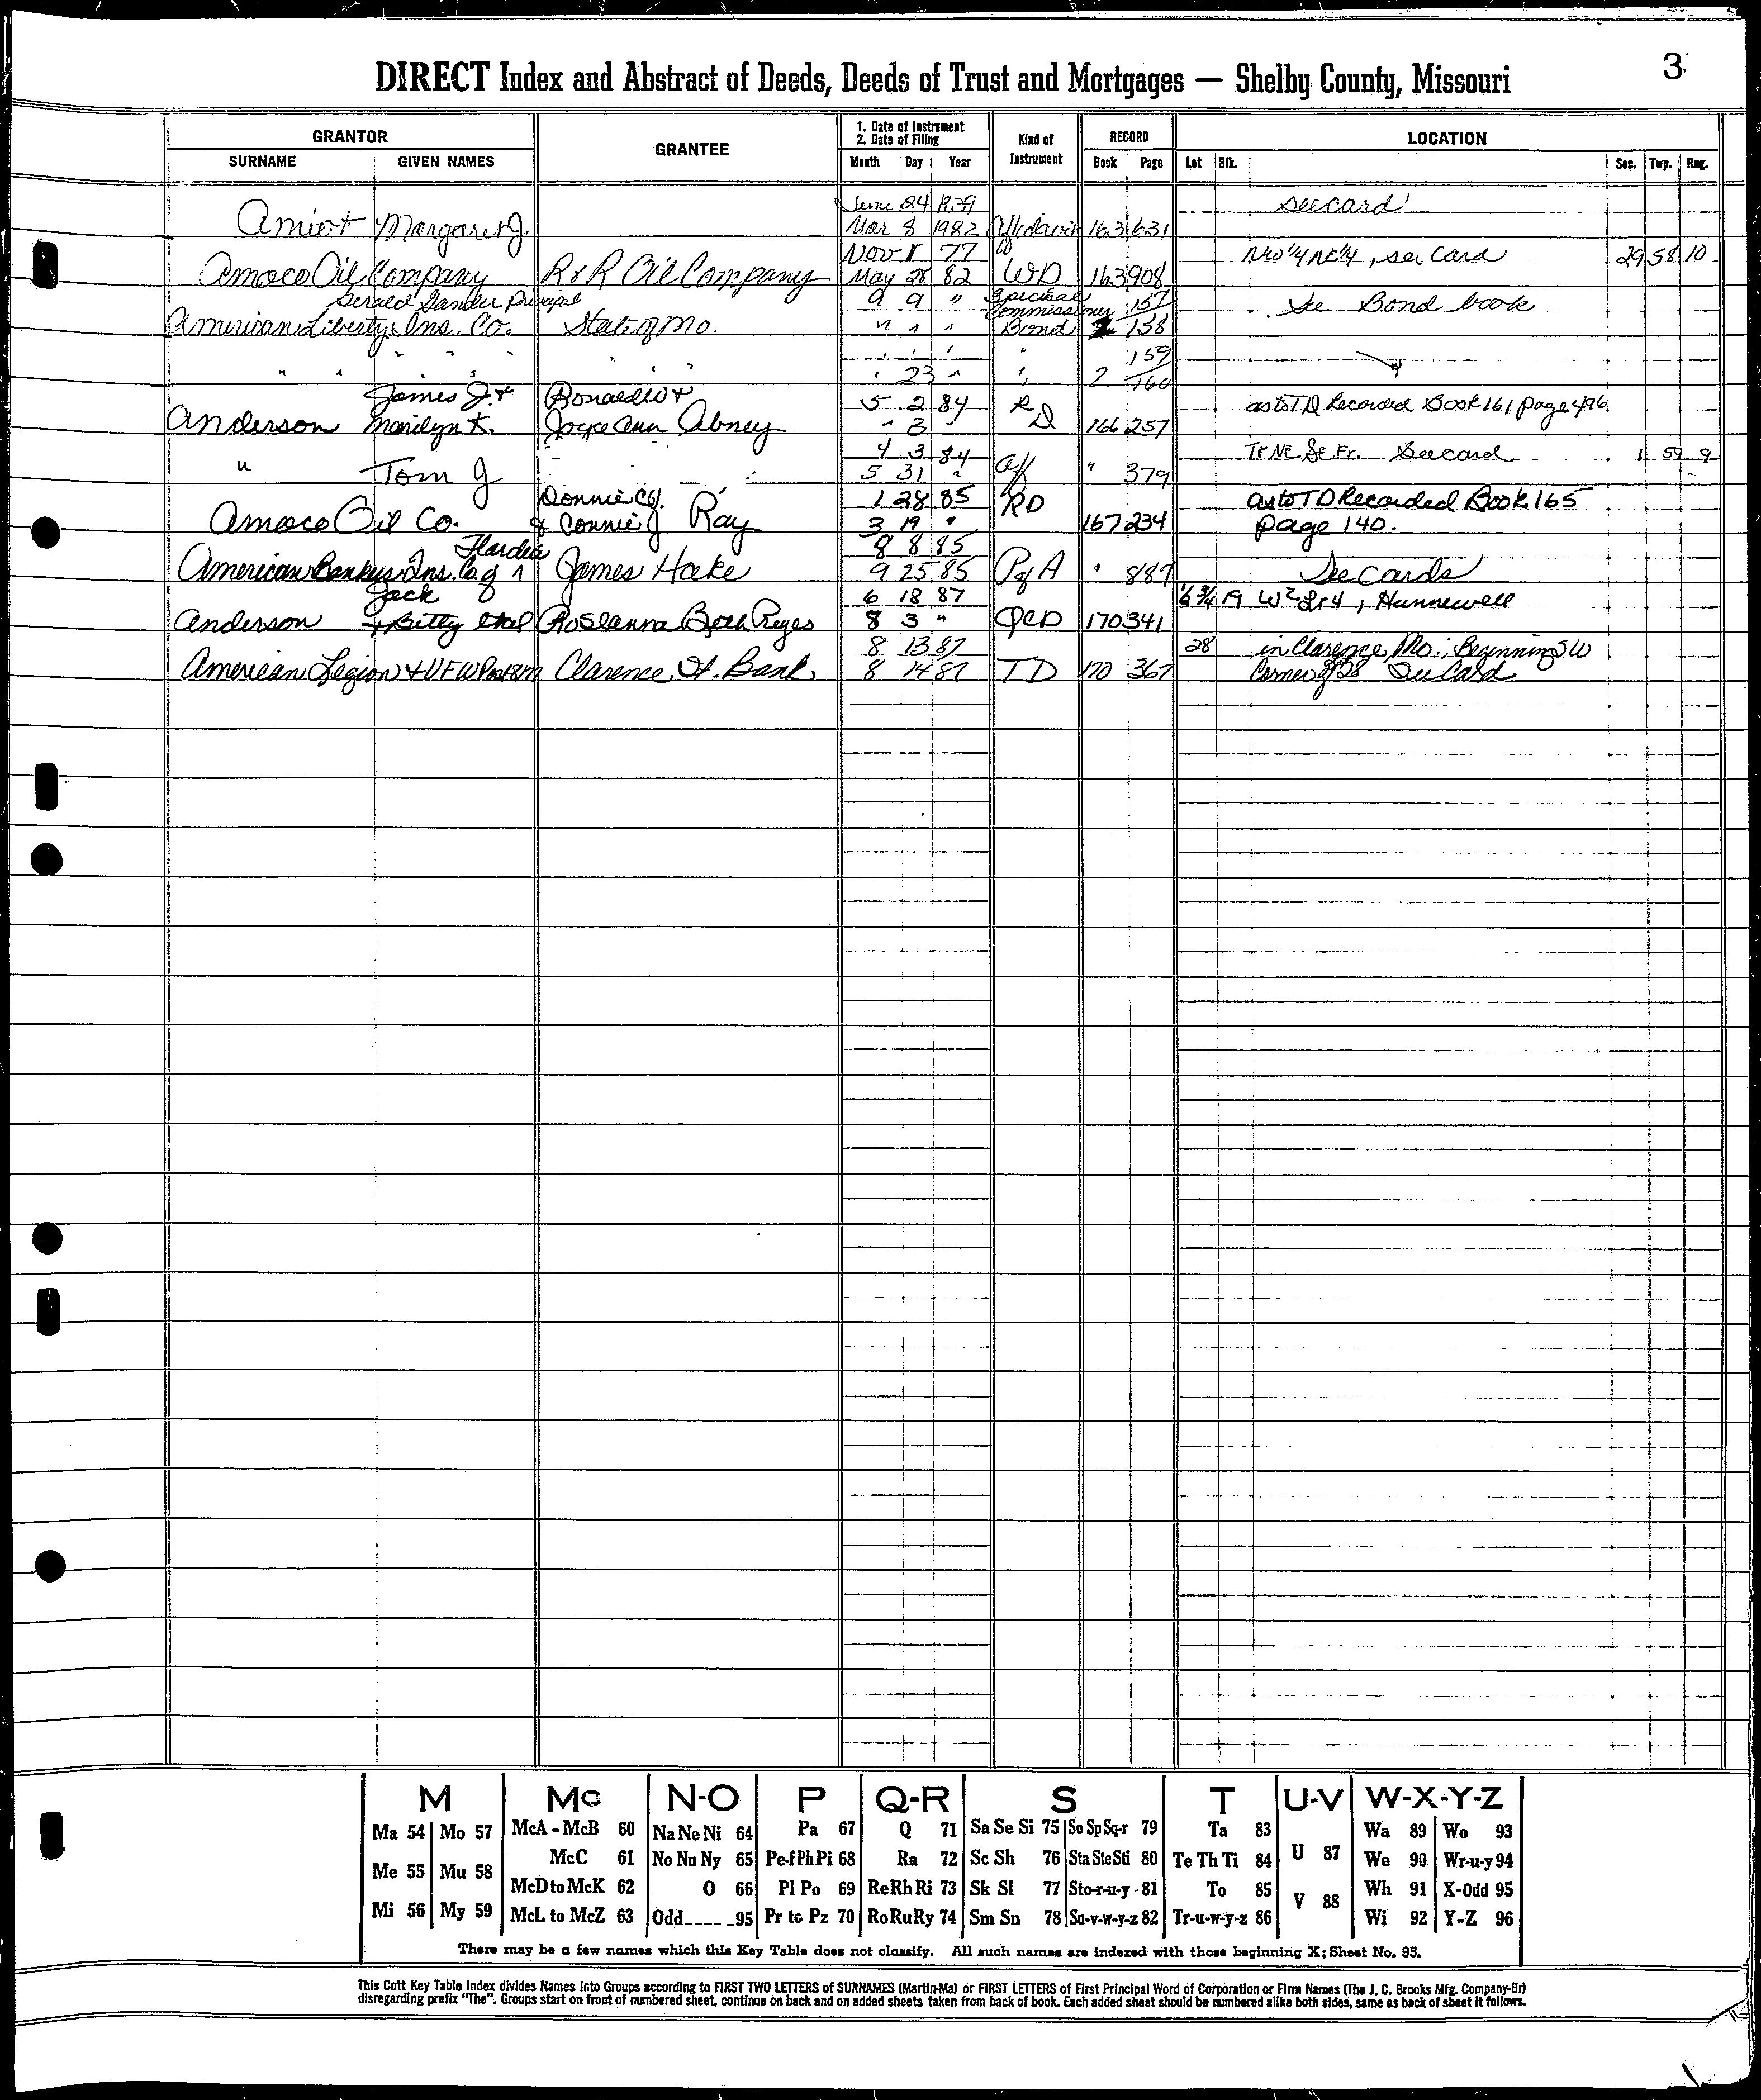 3
DIRECT Index and Abstract of Deeds, Deeds of Trust and Mortgages — Shelby County, Missouri
GRANTOR GRANTEE 1. Date of Instrument 2. Date of Filing Kind of Instrument RECORD LOCATION
SURNAME GIVEN NAMES Month Day Year Book Page Lot Blk. Sec. Twp. Rng.
June 24 1939 see card
Amiot Margaret J. Mar 8 1982 163 631
Nov 1 77 NW 1/4 NE 1/4, see Card 29 58 10
Amoco Oil Company R & R Oil Company May 28 82 WD 163 908
Gerald Gander Principal 9 9 " Special Commissioner 157 See Bond book
American Liberty Ins. Co. State of Mo. " " " Bond 2 158
" " " " " " " " " " 159
" " " " " " " 23 " " 2 160
James J. & Ronald W & 5 2 84 RD as to TD Recorded Book 161 page 496
Anderson Marilyn K. Joyce Ann Abney " 3 166 257
4 3 84 Tr NE, SE, Fr. See card 1 59 9
" Tom J 5 31 " Aff " 379
Donnie W. 1 28 85 RD as to TD Recorded Book 165
Amoco Oil Co. & Connie J Ray 3 19 " 167 234 page 140.
Florida 8 8 85
American Bankers Ins. Co. of ^ James Hake 9 25 85 P of A " 887 See Cards
Jack 6 18 87 19 W 2 Lt 4, Hunnewell
Anderson & Betty etal Roseanna Beth Reyes 8 3 " QCD 170 341
8 13 87 28 in Clarence, Mo: Beginning SW
American Legion & VFW Post Clarence St. Bank 8 14 87 TD 170 367 Corner of 28 See Card
M Mc N-O P Q-R S T U-V W-X-Y-Z
Ma 54 Mo 57 McA - McB 60 Na Ne Ni 64 Pa 67 Q 71 Sa Se Si 75 So Sp Sq-r 79 Ta 83 U 87 Wa 89 Wo 93
Me 55 Mu 58 McC 61 No Nu Ny 65 Pe-f Ph Pi 68 Ra 72 Sc Sh 76 Sta Ste Sti 80 Te Th Ti 84 We 90 Wr-u-y 94
McD to McK 62 O 66 Pl Po 69 Re Rh Ri 73 Sk Sl 77 Sto-r-u-y - 81 To 85 V 88 Wh 91 X-Odd 95
Mi 56 My 59 McL to McZ 63 Odd____95 Pr to Pz 70 Ro Ru Ry 74 Sm Sn 78 Su-v-w-y-z 82 Tr-u-w-y-z 86 Wi 92 Y-Z 96
There may be a few names which this Key Table does not classify. All such names are indexed with those beginning X; Sheet No. 95.
This Cott Key Table Index divides Names into Groups according to FIRST TWO LETTERS of SURNAMES (Martin-Ma) or FIRST LETTERS of First Principal Word of Corporation or Firm Names (The J. C. Brooks Mfg. Company-Br)
disregarding prefix "The". Groups start on front of numbered sheet, continue on back and on added sheets taken from back of book. Each added sheet should be numbered alike both sides, same as back of sheet it follows.